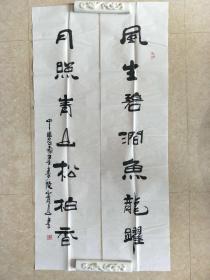 風生碧澗魚龍躍
月照青山松柏香